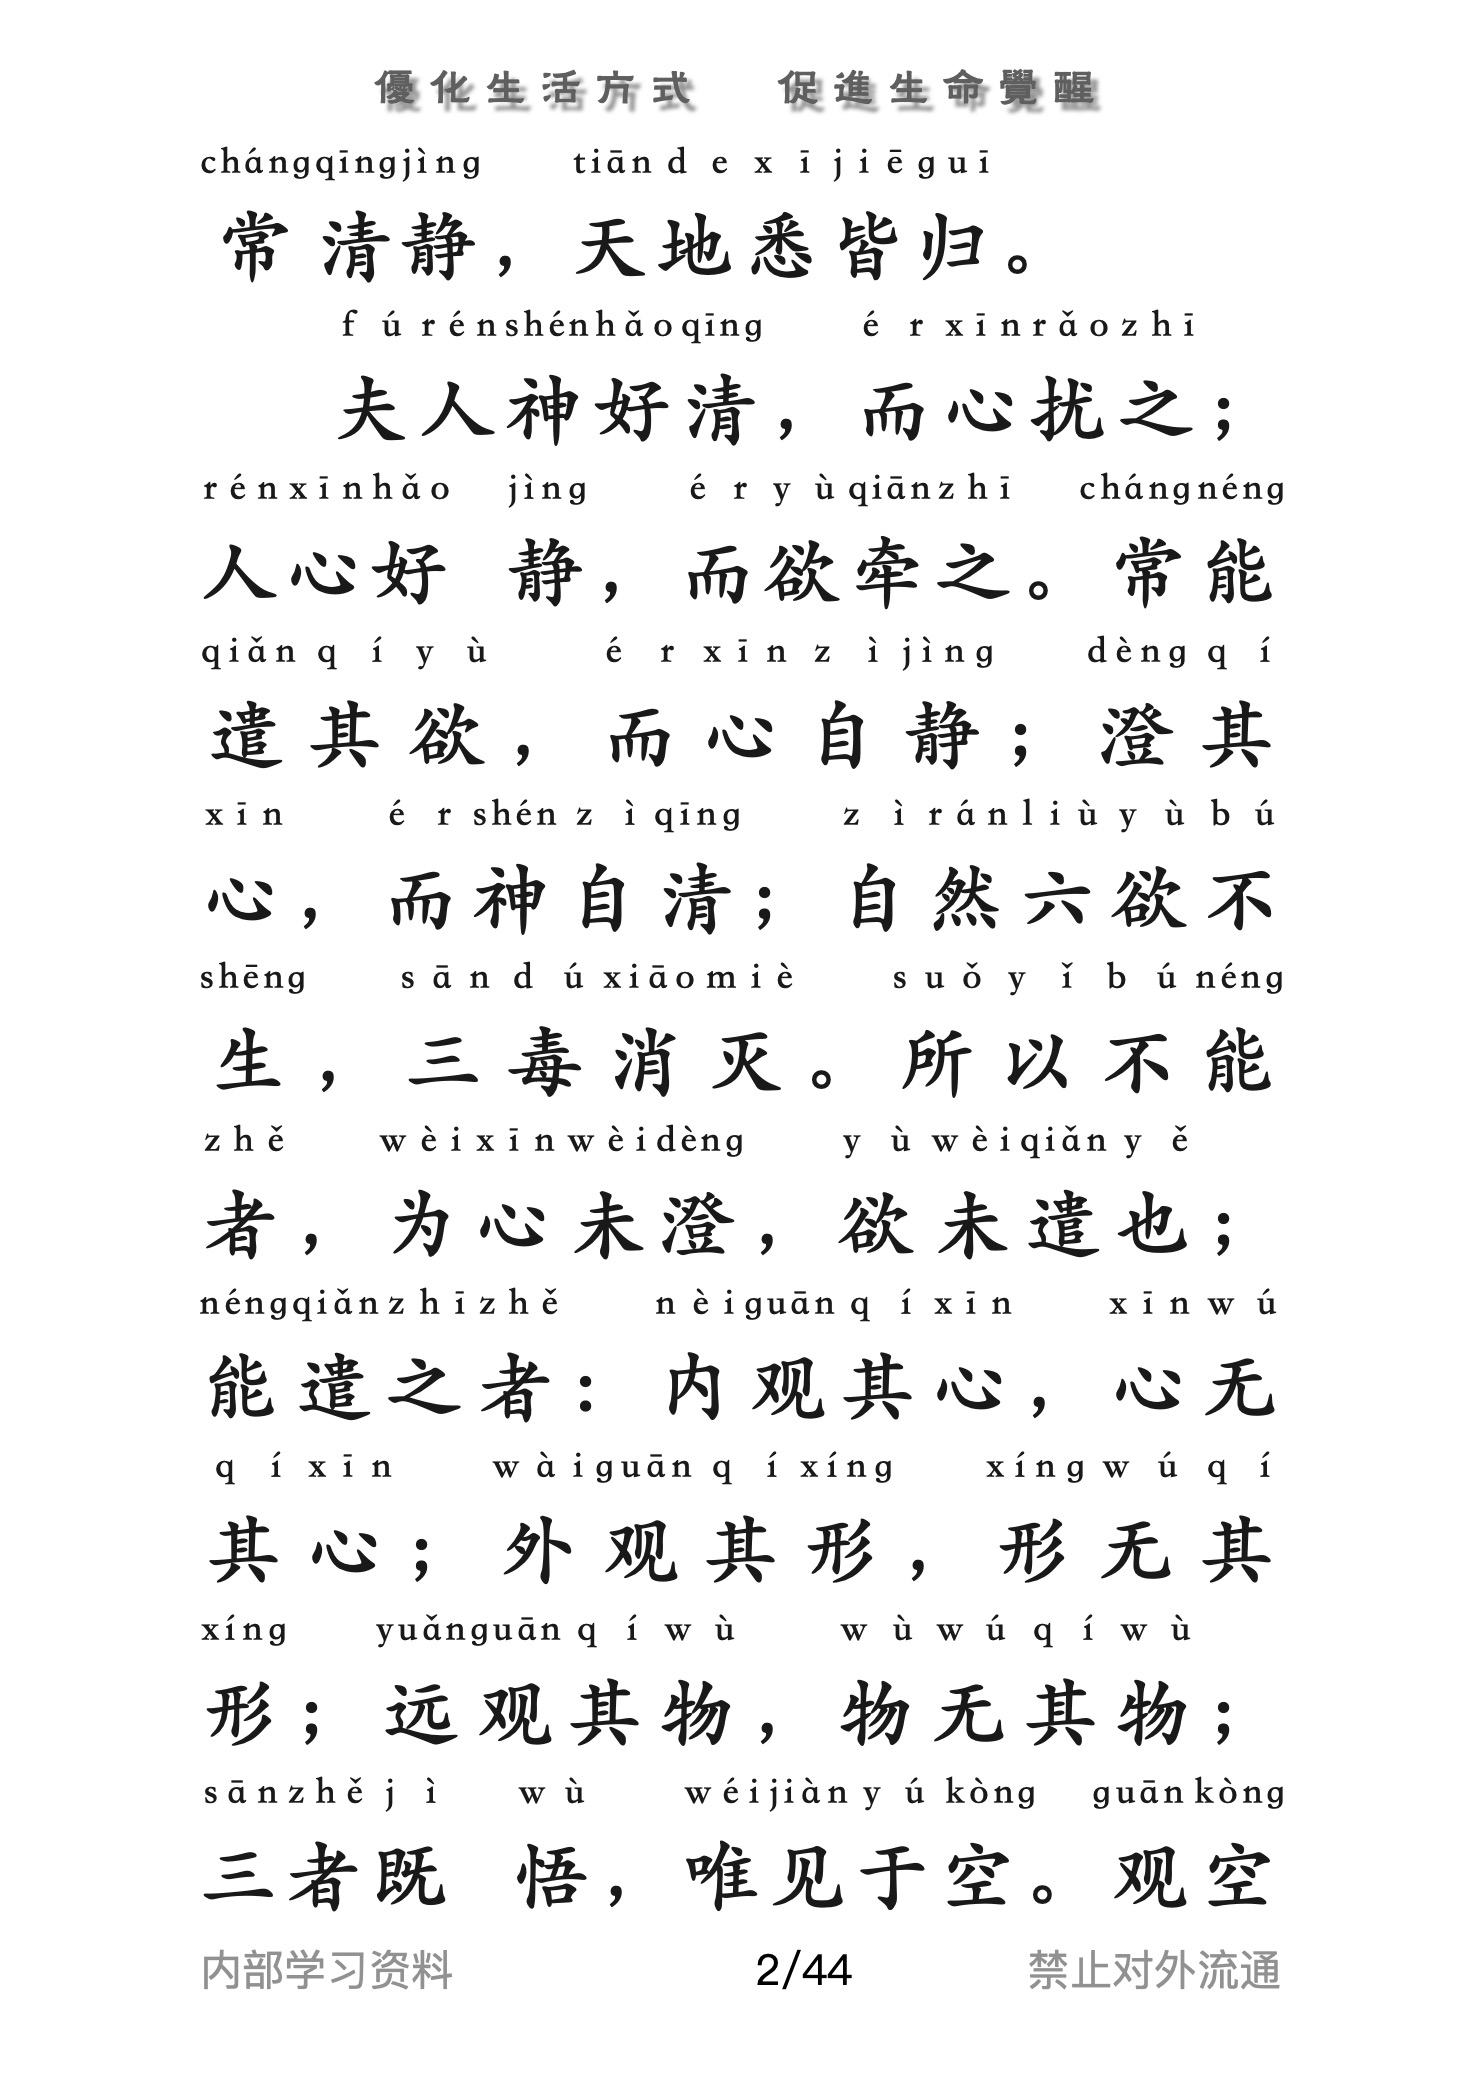 優化生活方式 促進生命覺醒
chángqīngjìng tiāndexījiēguī
常清静，天地悉皆归。
fúrénshénhǎoqīng érxīnrǎozhī
夫人神好清，而心扰之；
rénxīnhǎo jìng éryùqiānzhī chángnéng
人心好 静，而欲牵之。常能
qiǎnqíyù érxīnzìjìng dèngqí
遣其欲，而心自静；澄其
xīn érshénzìqīng zìránliùyùbú
心，而神自清；自然六欲不
shēng sāndúxiāomiè suǒyǐbúnéng
生，三毒消灭。所以不能
zhě wèixīnwèidèng yùwèiqiǎnyě
者，为心未澄，欲未遣也；
néngqiǎnzhīzhě nèiguānqíxīn xīnwú
能遣之者：内观其心，心无
qíxīn wàiguānqíxíng xíngwúqí
其心；外观其形，形无其
xíng yuǎnguānqíwù wùwúqíwù
形；远观其物，物无其物；
sānzhějì wù wéijiànyúkòng guānkòng
三者既 悟，唯见于空。观空
内部学习资料 2/44 禁止对外流通